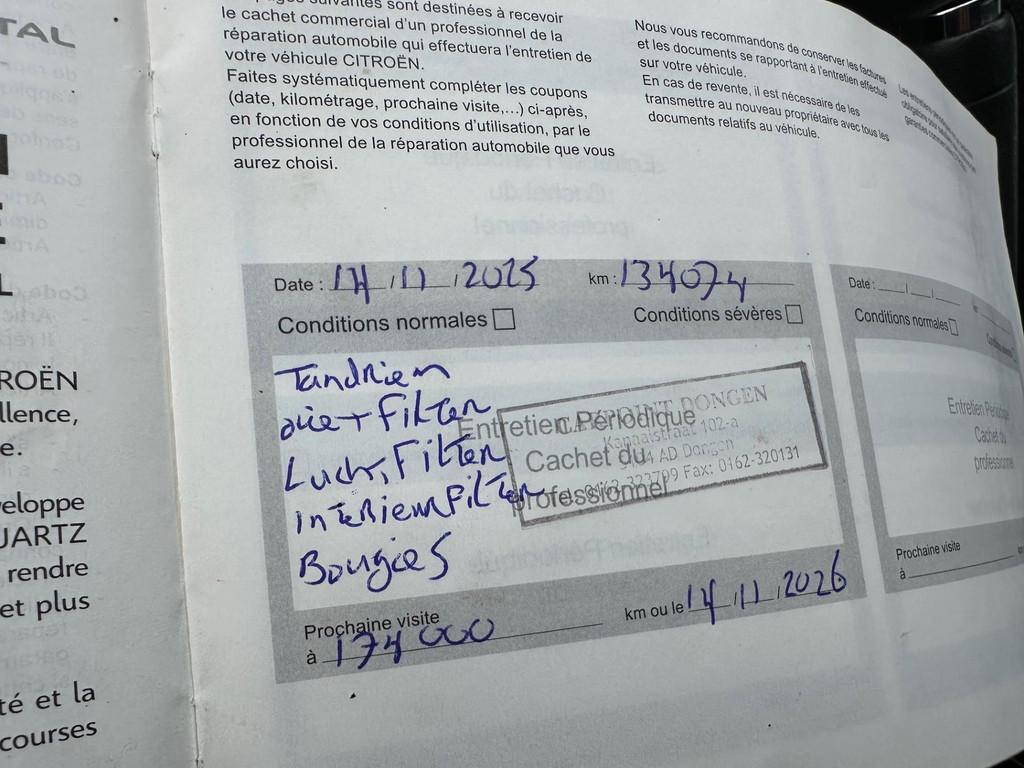 TAL
ROËN
llence,
e.
veloppe
UARTZ
rendre
et plus
té et la
courses
suivantes sont destinées à recevoir
le cachet commercial d'un professionnel de la
réparation automobile qui effectuera l'entretien de
votre véhicule CITROËN.
Faites systématiquement compléter les coupons
(date, kilométrage, prochaine visite,...) ci-après,
en fonction de vos conditions d'utilisation, par le
professionnel de la réparation automobile que vous
aurez choisi.
Nous vous recommandons de conserver les factures
et les documents se rapportant à l'entretien effectué
sur votre véhicule.
En cas de revente, il est nécessaire de les
transmettre au nouveau propriétaire avec tous les
documents relatifs au véhicule.
Date : 14/11/2025 km : 134074
Conditions normales Conditions sévères
Tandriem
olie + Filter
Lucht Filter
interieur Filter
Bougies
Entretien Périodique
Cachet du
professionnel
DONGEN
102-a
AD Dongen
Fax: 0162-320131
Prochaine visite
à 174 000 km ou le 14/11/2026
Date :
Conditions normales
Entretien Périodique
Cachet du
professionnel
Prochaine visite
à